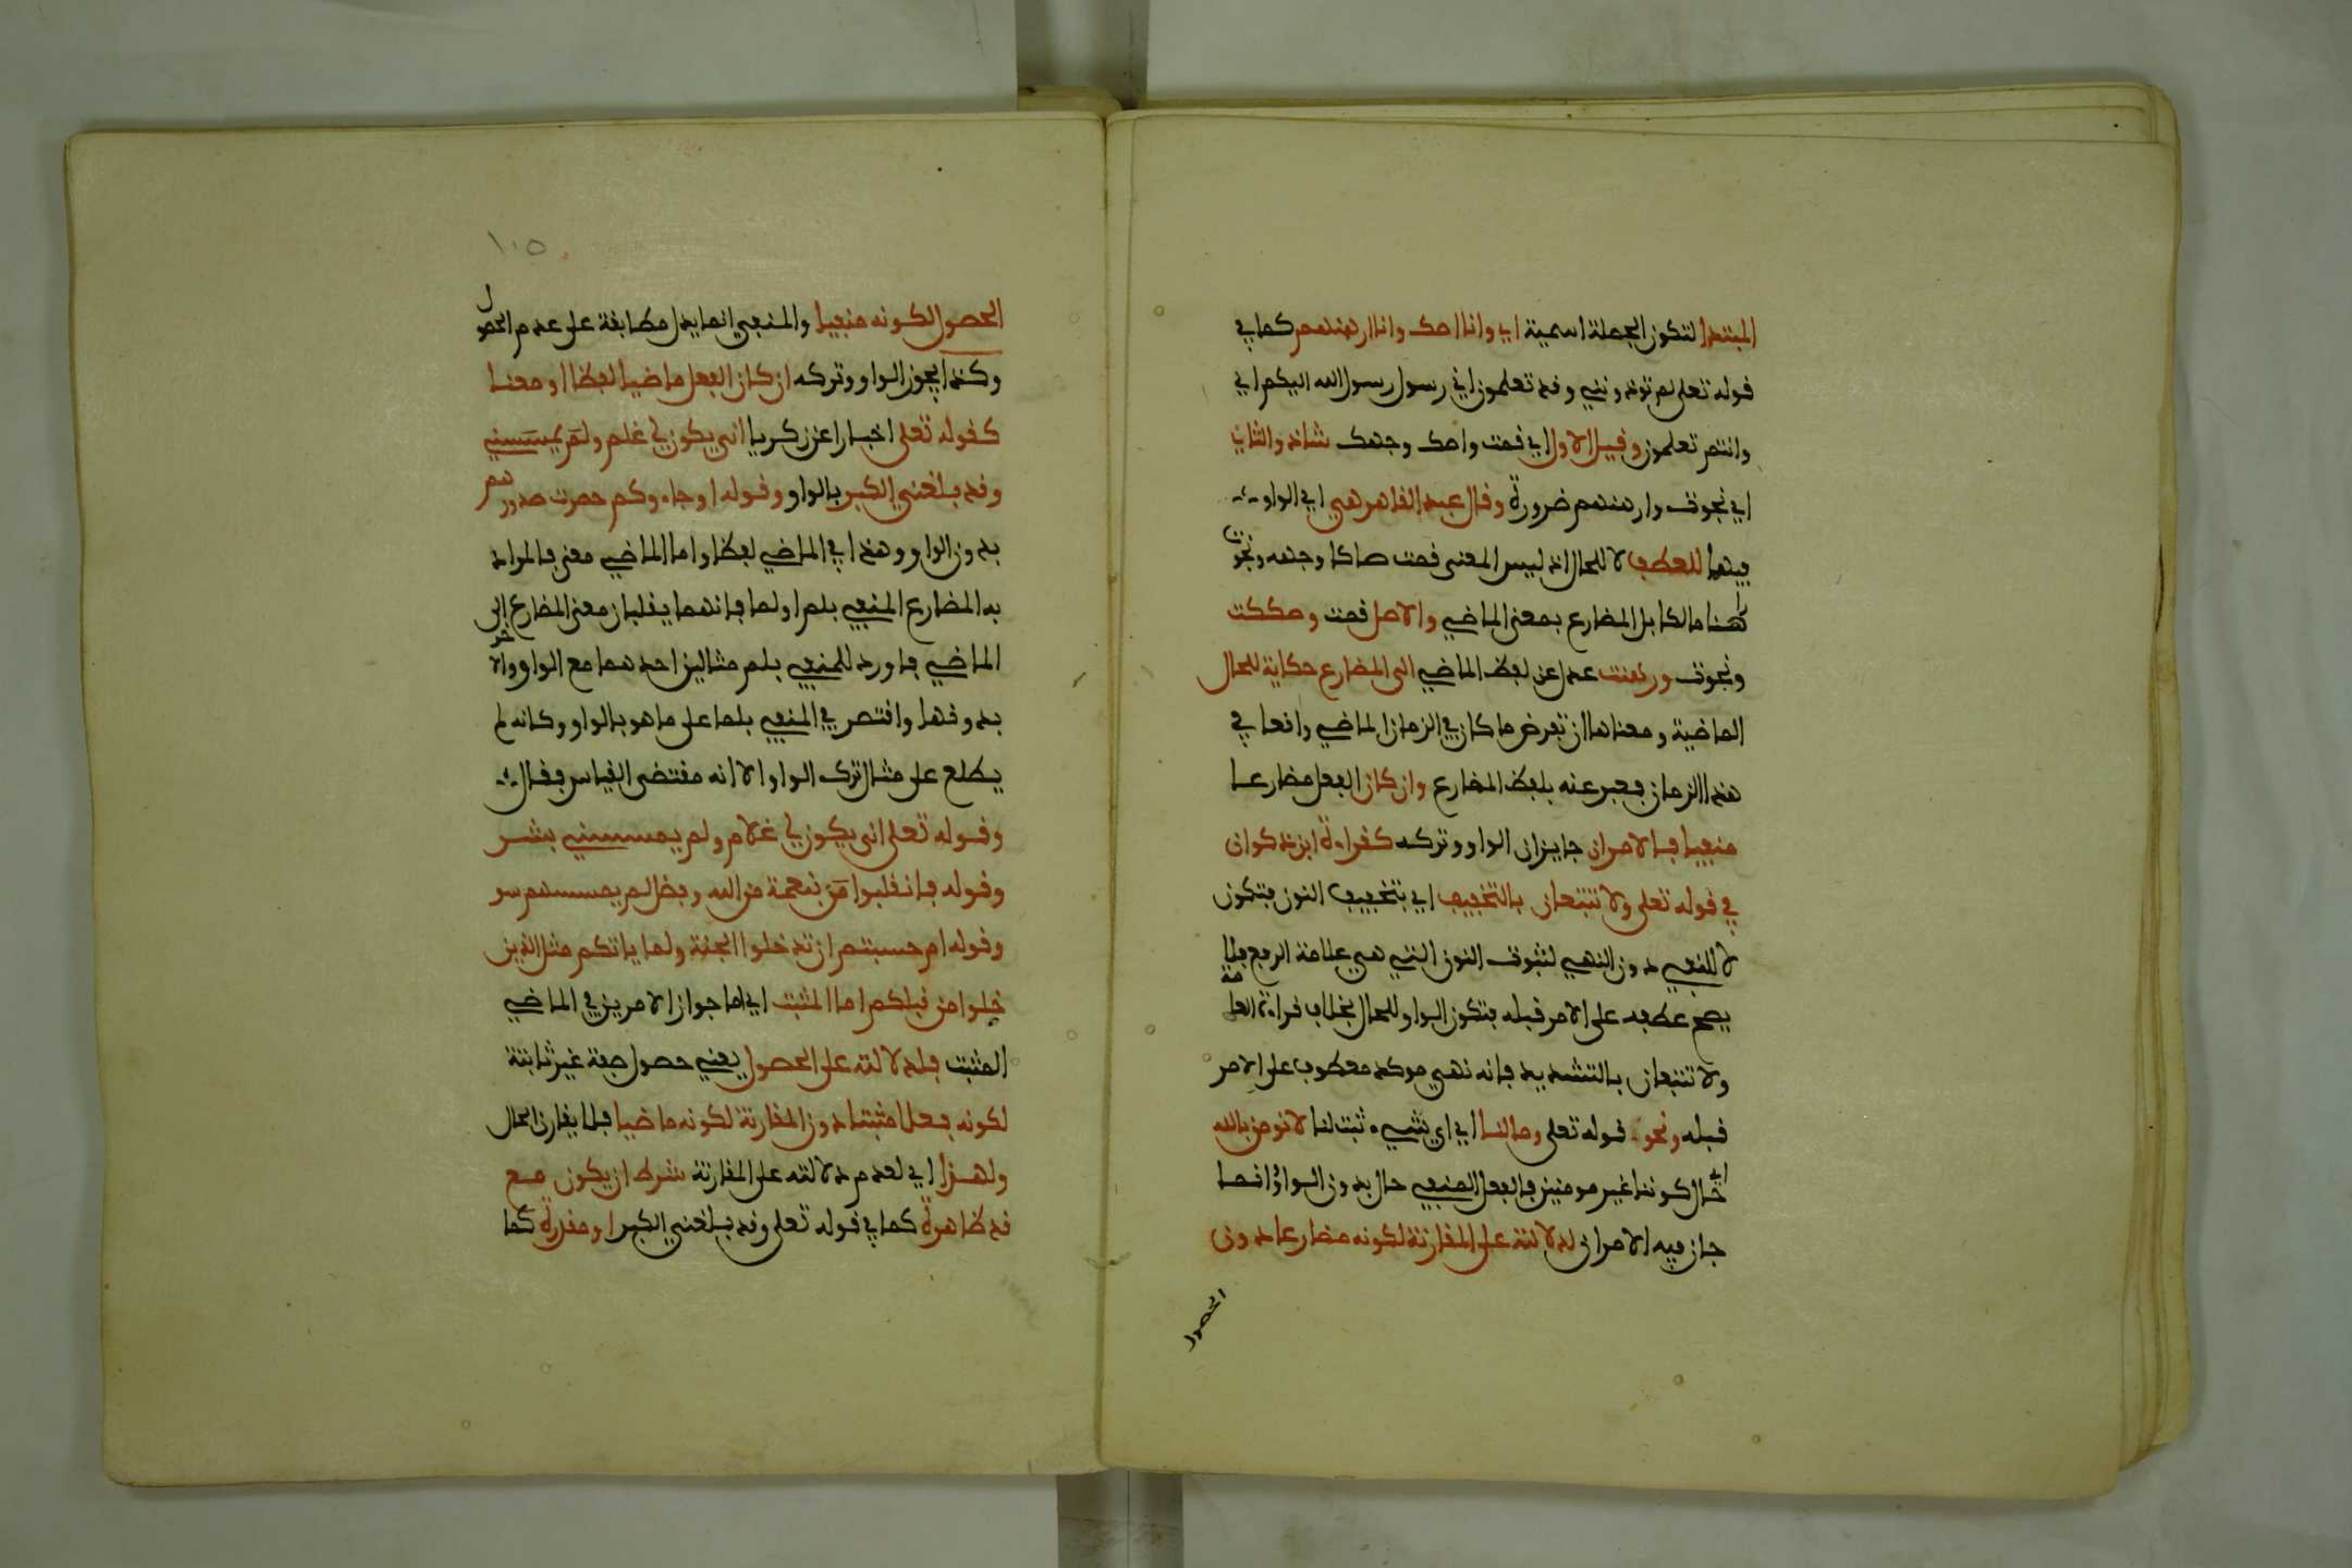 المبتدا لتكون الجملة اسمية اي وانا اصك وانا ارهنهم كما في
قوله تعلى لم توذونني وقد تعلمون اني رسول رسول الله اليكم اي
وانتم تعلمون وقيل الاول اي قمت واصك وجهه شاذ والثاني
اي نجوت وارهنهم ضرورة وقال عبد القاهر هي اي الواو
فيهما للعطف لا للحال اذ ليس المعنى قمت صاكا وجهه ونجوت
راهنا مالكا بل المضارع بمعنى الماضي والاصل قمت وصككت
ونجوت ورهنت عدل عن لفظ الماضي الى المضارع حكاية للحال
الماضية ومعناها ان تفرض ما كان في الزمان الماضي واقعا في
هذا الزمان فعبر عنه بلفظ المضارع وان كان الفعل مضارعا
منفيا فالامران جايزان الواو وتركه كقراءة ابن ذكوان
في قوله تعلى ولا تتبعان بالتخفيف اي بتخفيف النون فتكون
لا للنفي دون النهي لثبوت النون التي هي علامة الرفع فلا
يصح عطفه على الامر قبله فتكون الواو للحال بخلاف قراءة العامة
ولا تتبعان بالتشديد فانه نهي موكد معطوف على الامر
قبله ونحو قوله تعلى وما لنا اي اي شيء ثبت لنا لا نومن بالله
اي حال كوننا غير مومنين فالفعل المنفي حال بدون الواو وانما
جاز فيه الامران لدلالته على المقارنة لكونه مضارعا دون
الحصول
١٠٥
الحصول لكونه منفيا والمنفي انما يدل مطابقة على عدم الحصول
وكذا يجوز الواو وتركه ان كان الفعل ماضيا لفظا او معنا
كقوله تعلى اخبارا عن زكريا انى يكون لي غلم ولم يمسسني
وقد بلغني الكبر بالواو وقوله او جاءوكم حصرت صدورهم
بدون الواو وهذا في الماضي لفظا واما الماضي معنى فالمراد
به المضارع المنفي بلم او لما فانهما يقلبان معنى المضارع الى
الماضي فاورد للمنفي بلم مثالين احدهما مع الواو والاخر
بدونها واقتصر في المنفي بلما على ما هو بالواو وكانه لم
يطلع على مثال ترك الواو الا انه مقتضى القياس فقال
وقوله تعلى انى يكون لي غلام ولم يمسسني بشر
وقوله فانقلبوا بنعمة من الله وفضل لم يمسسهم سو
وقوله ام حسبتم ان تدخلوا الجنة ولما ياتكم مثل الذين
خلوا من قبلكم اما المثبت اي اما جواز الامرين في الماضي
المثبت فلدلالته على الحصول يعني حصول صفة غير ثابتة
لكونه فعلا مثبتا دون المقارنة لكونه ماضيا فلا يقارن الحال
ولهذا اي لعدم دلالته على المقارنة شرط ان يكون مع
قد ظاهرة كما في قوله تعلى وقد بلغني الكبر او مقدرة كما